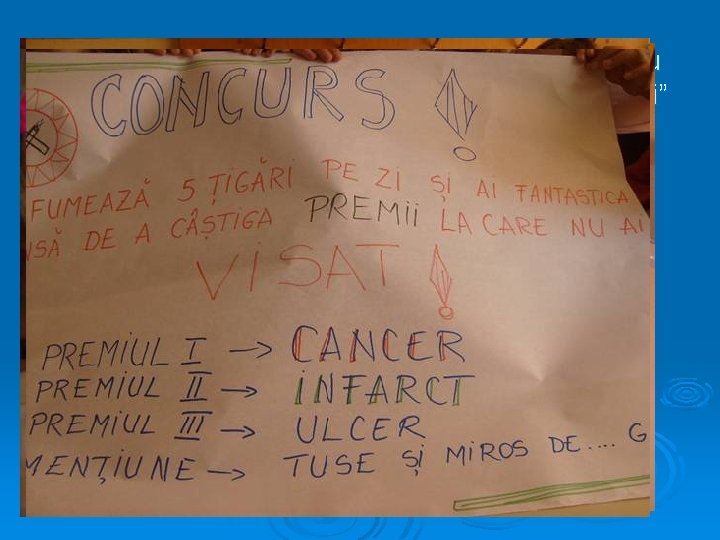 CONCURS !
FUMEAZĂ 5 ȚIGĂRI PE ZI ȘI AI FANTASTICA
DE A CÂȘTIGA PREMII LA CARE NU AI
VISAT !
PREMIUL I → CANCER
PREMIUL II → INFARCT
PREMIUL III → ULCER
MENȚIUNE → TUSE ȘI MIROS DE....